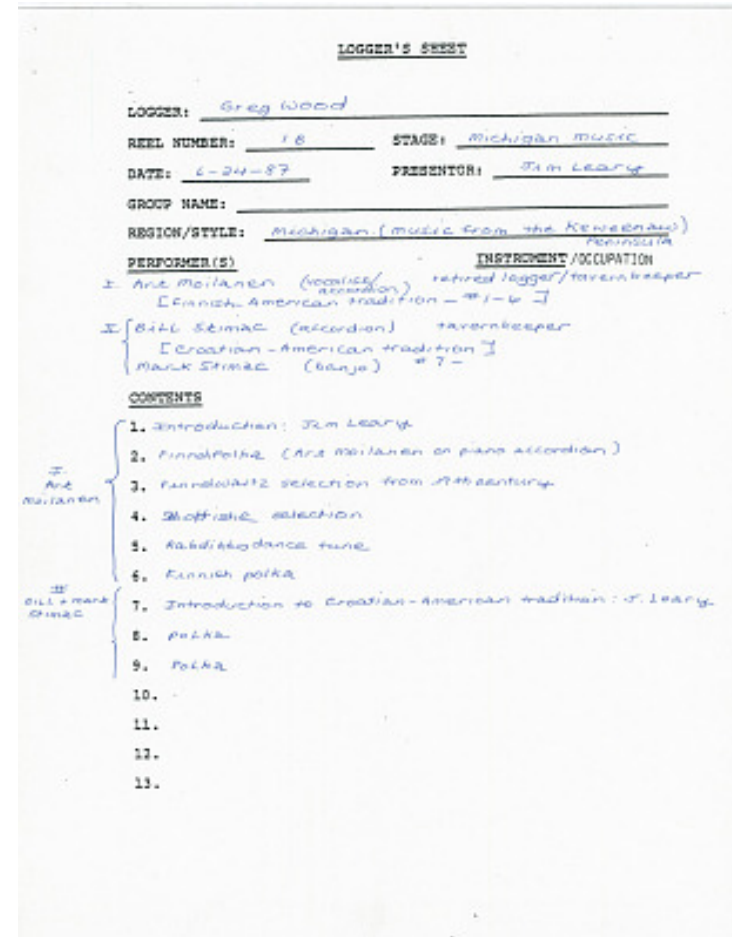 LOGGER'S SHEET
LOGGER: Greg Wood
REEL NUMBER: 18 STAGE: Michigan Music
DATE: 6-24-87 PRESENTOR: Jim Leary
GROUP NAME:
REGION/STYLE: Michigan (music from the Keweenaw)
Peninsula
PERFORMER(S) INSTRUMENT/OCCUPATION
I Art Moilanen (vocalist/accordion) retired logger/tavernkeeper
[Finnish-American tradition - #1-6]
II Bill Stimac (accordion) tavernkeeper
[Croatian-American tradition]
Mark Stimac (banjo) #7-
CONTENTS
1. Introduction: Jim Leary
2. (Art Moilanen on piano accordion)
3. selection from 19th century
4. selection
5. dance tune
6. Finnish polka
7. Introduction to Croatian-American tradition: J. Leary
8. Polka
9. Polka
10.
11.
12.
13.
I.
Art
Moilanen
II
Bill + Mark
Stimac